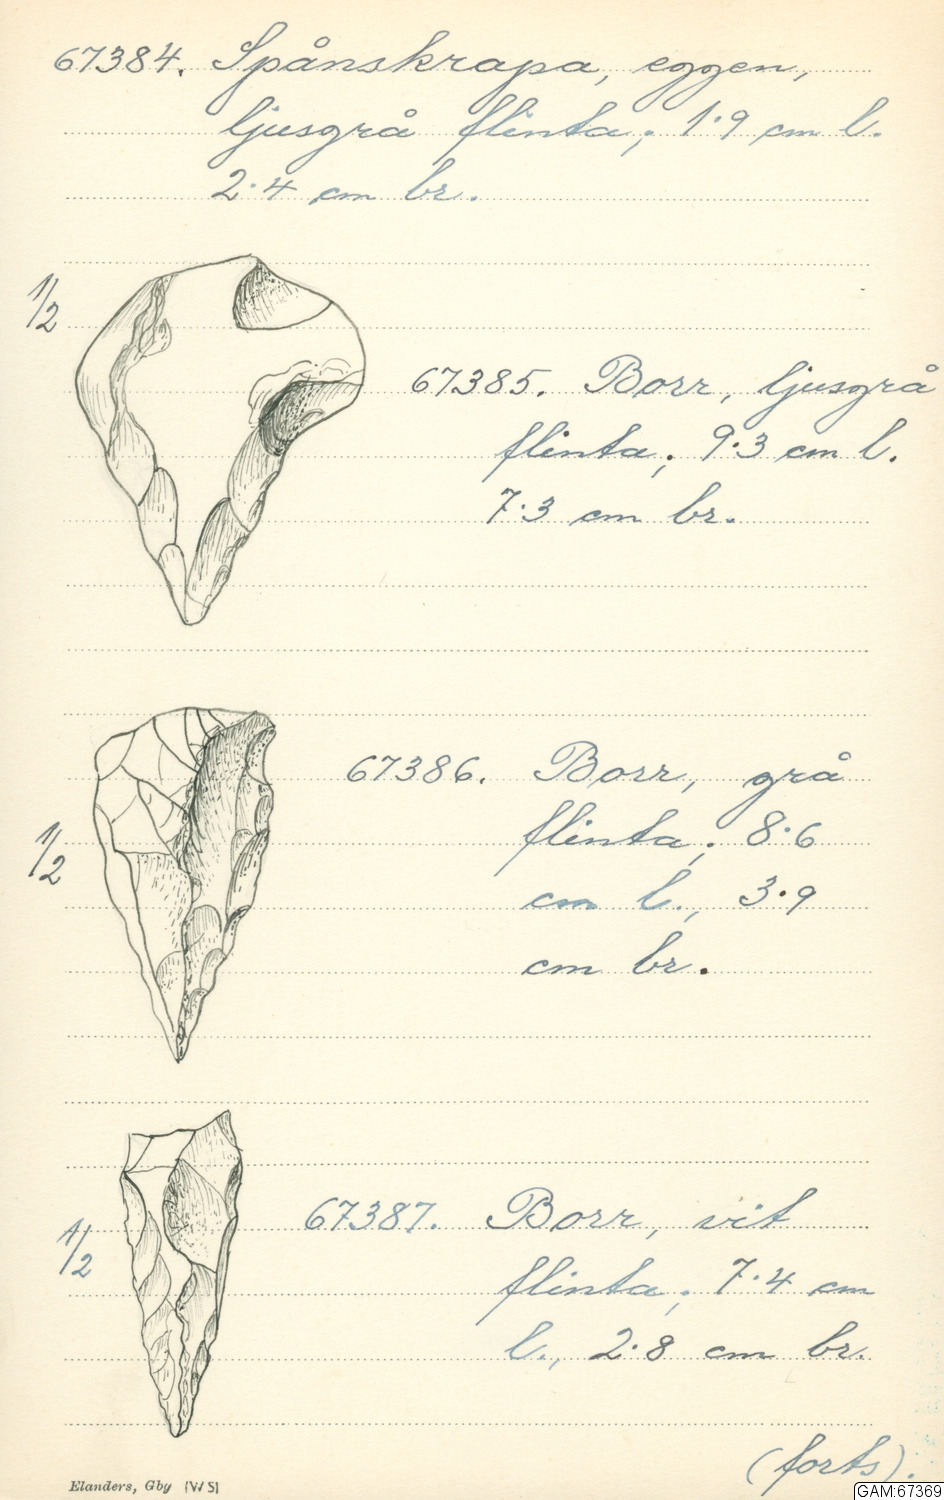 67384. Spånskrapa, eggen,
ljusgrå flinta; 1·9 cm l.
2·4 cm br.
1/2
67385. Borr, ljusgrå
flinta; 9·3 cm l.
7·3 cm br.
67386. Borr, grå
flinta; 8·6
1/2
cm l., 3·9
cm br.
67387. Borr, vit
1/2
flinta; 7·4 cm
l., 2·8 cm br.
(forts).
Elanders, Gby (WS)
GAM:67369